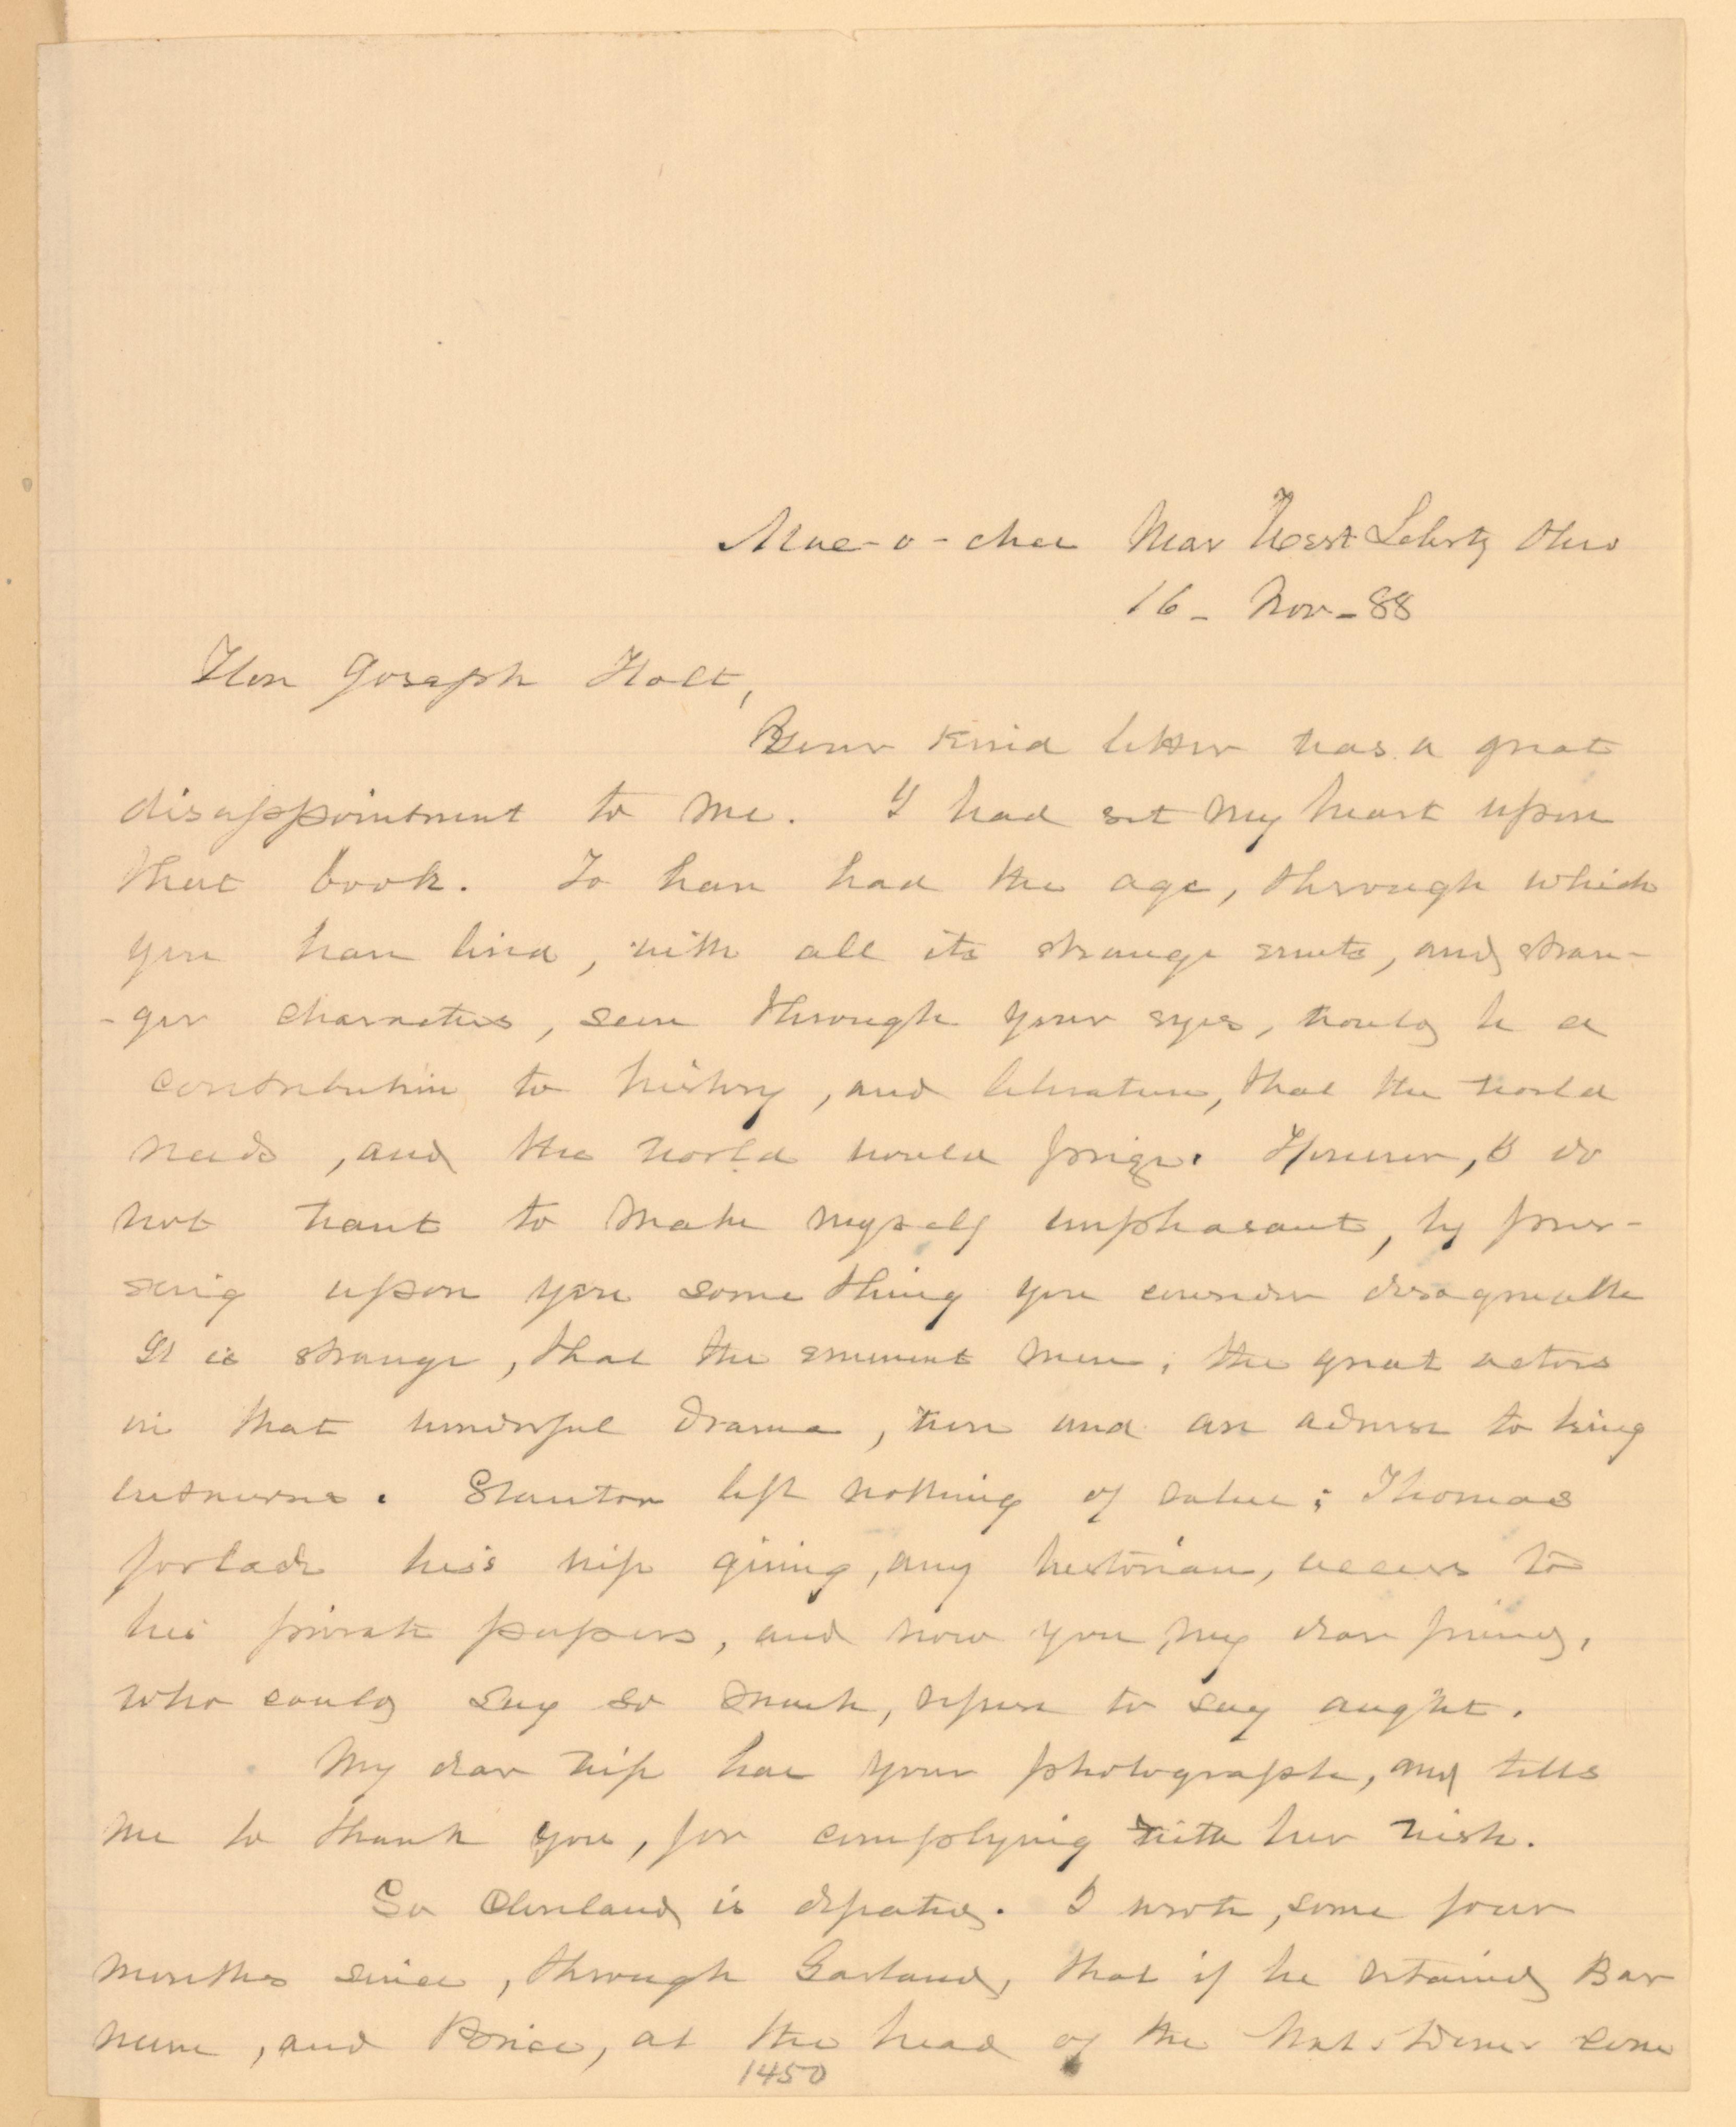 Mac-o-chee Near West Liberty Ohio
16 - Nov - 88
Hon Joseph Holt,
Your kind letter was a great
disappointment to me. I had set my heart upon
that book. To have had the age, through which
you have lived, with all its strange events, and stran-
-ger characters, seen through your eyes, would be a
contribution to history, and literature, that the world
needs, and the world would prize. However, I do
not want to make myself unpleasant, by pres-
sing upon you some thing you consider disagreeable
It is strange, that the eminent men, the great actors
in that wonderful drama, were and are adverse to being
witnesses. Stanton left nothing of value; Thomas
forbade his wife giving, any historian, access to
his private papers, and now you, my dear friend,
who could say so much, refuse to say aught.
My dear wife has your photograph, and tells
me to thank you, for complying with her wish.
So Cleveland is defeated. I wrote, some four
months since, through Garland, that if he retained Bar
num, and Brice, at the head of the Nat. Dem. com
1450